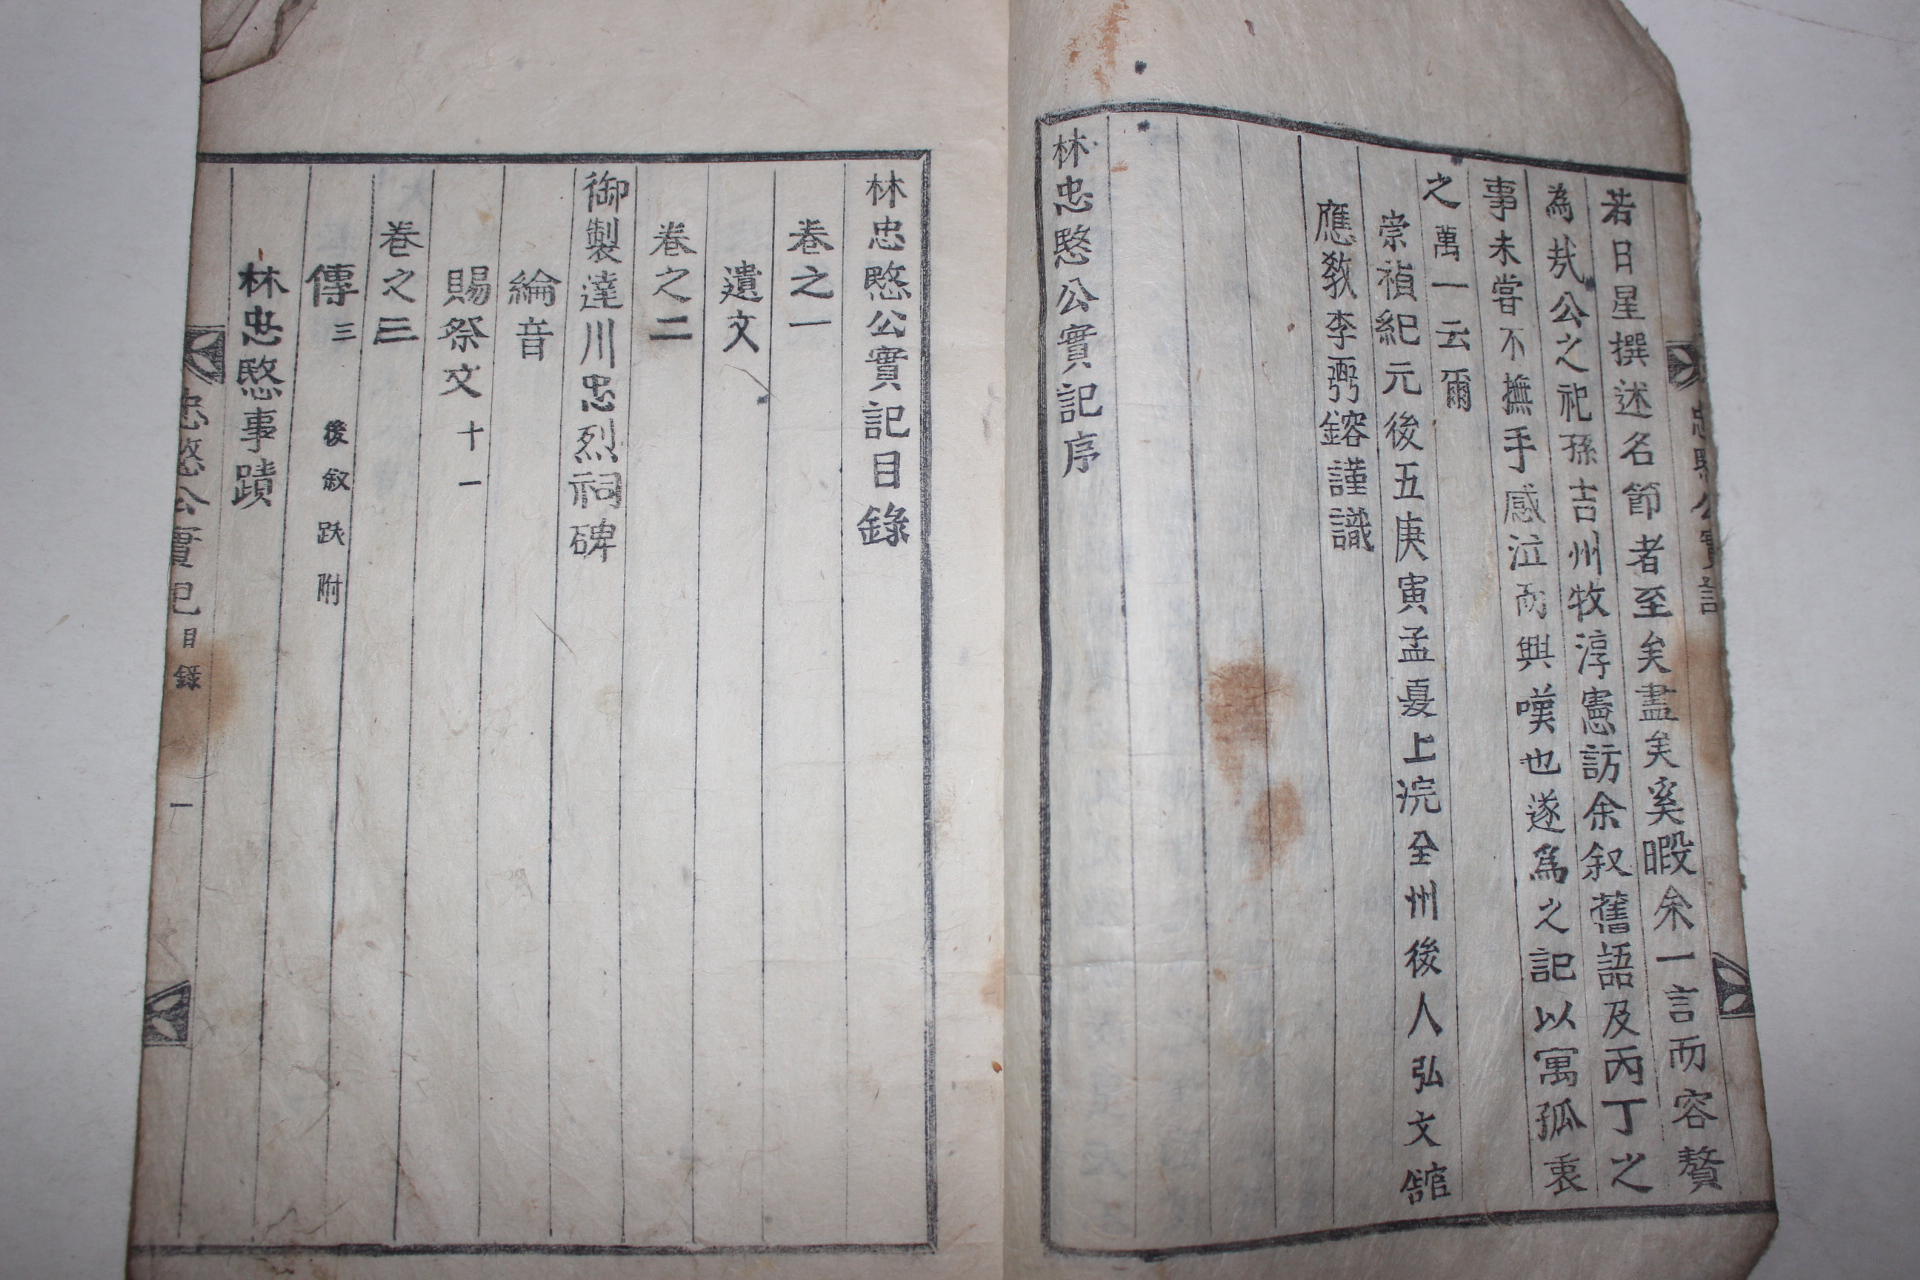 若日星撰述名節者至矣盡矣奚暇余一言而容贅
為㢤公之祀孫吉州牧淳憲訪余叙舊語及丙丁之
事未嘗不撫手感泣而興嘆也遂爲之記以寓孤衷
之萬一云爾
崇禎紀元後五庚寅孟夏上浣全州後人弘文舘
應教李弼鎔謹識
林忠愍公實記序
林忠愍公實記目錄
卷之一
遺文
卷之二
御製達川忠烈祠碑
綸音
賜祭文十一
卷之三
傳三 後叙跋附
林忠愍事蹟
忠愍公實記 目錄 一